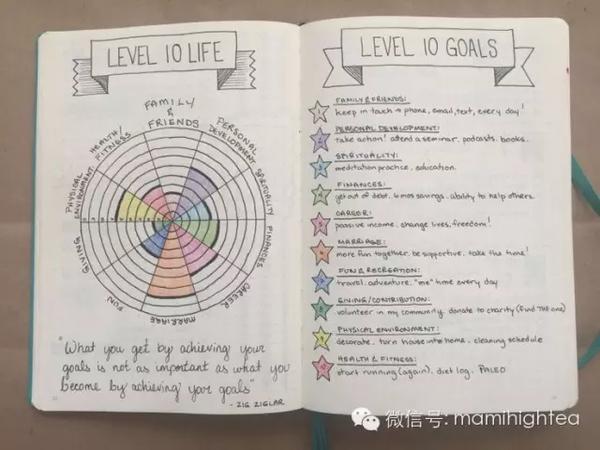 LEVEL 10 LIFE
FAMILY
&
FRIENDS
PERSONAL
DEVELOPMENT
SPIRITUALITY
FINANCES
CAREER
MARRIAGE
FUN
GIVING
PHYSICAL
ENVIRONMENT
HEALTH/
FITNESS
"What you get by achieving your
goals is not as important as what you
become by achieving your goals"
- ZIG ZIGLAR
LEVEL 10 GOALS
1 FAMILY & FRIENDS:
keep in touch → phone, email, text, every day!
2 PERSONAL DEVELOPMENT:
take action! attend a seminar, podcasts, books.
3 SPIRITUALITY:
meditation practice, education.
4 FINANCES:
get out of debt, 6 mos savings, ability to help others.
5 CAREER:
passive income, change lives, freedom!
6 MARRIAGE:
more fun together, be supportive, take the time!
7 FUN & RECREATION:
travel, adventure, "me" time every day
8 GIVING/CONTRIBUTION:
volunteer in my community, donate to charity (find THE one)
9 PHYSICAL ENVIRONMENT:
decorate, turn house into home, cleaning schedule
10 HEALTH & FITNESS:
start running (again), diet log, PALEO
微信号: mamihightea